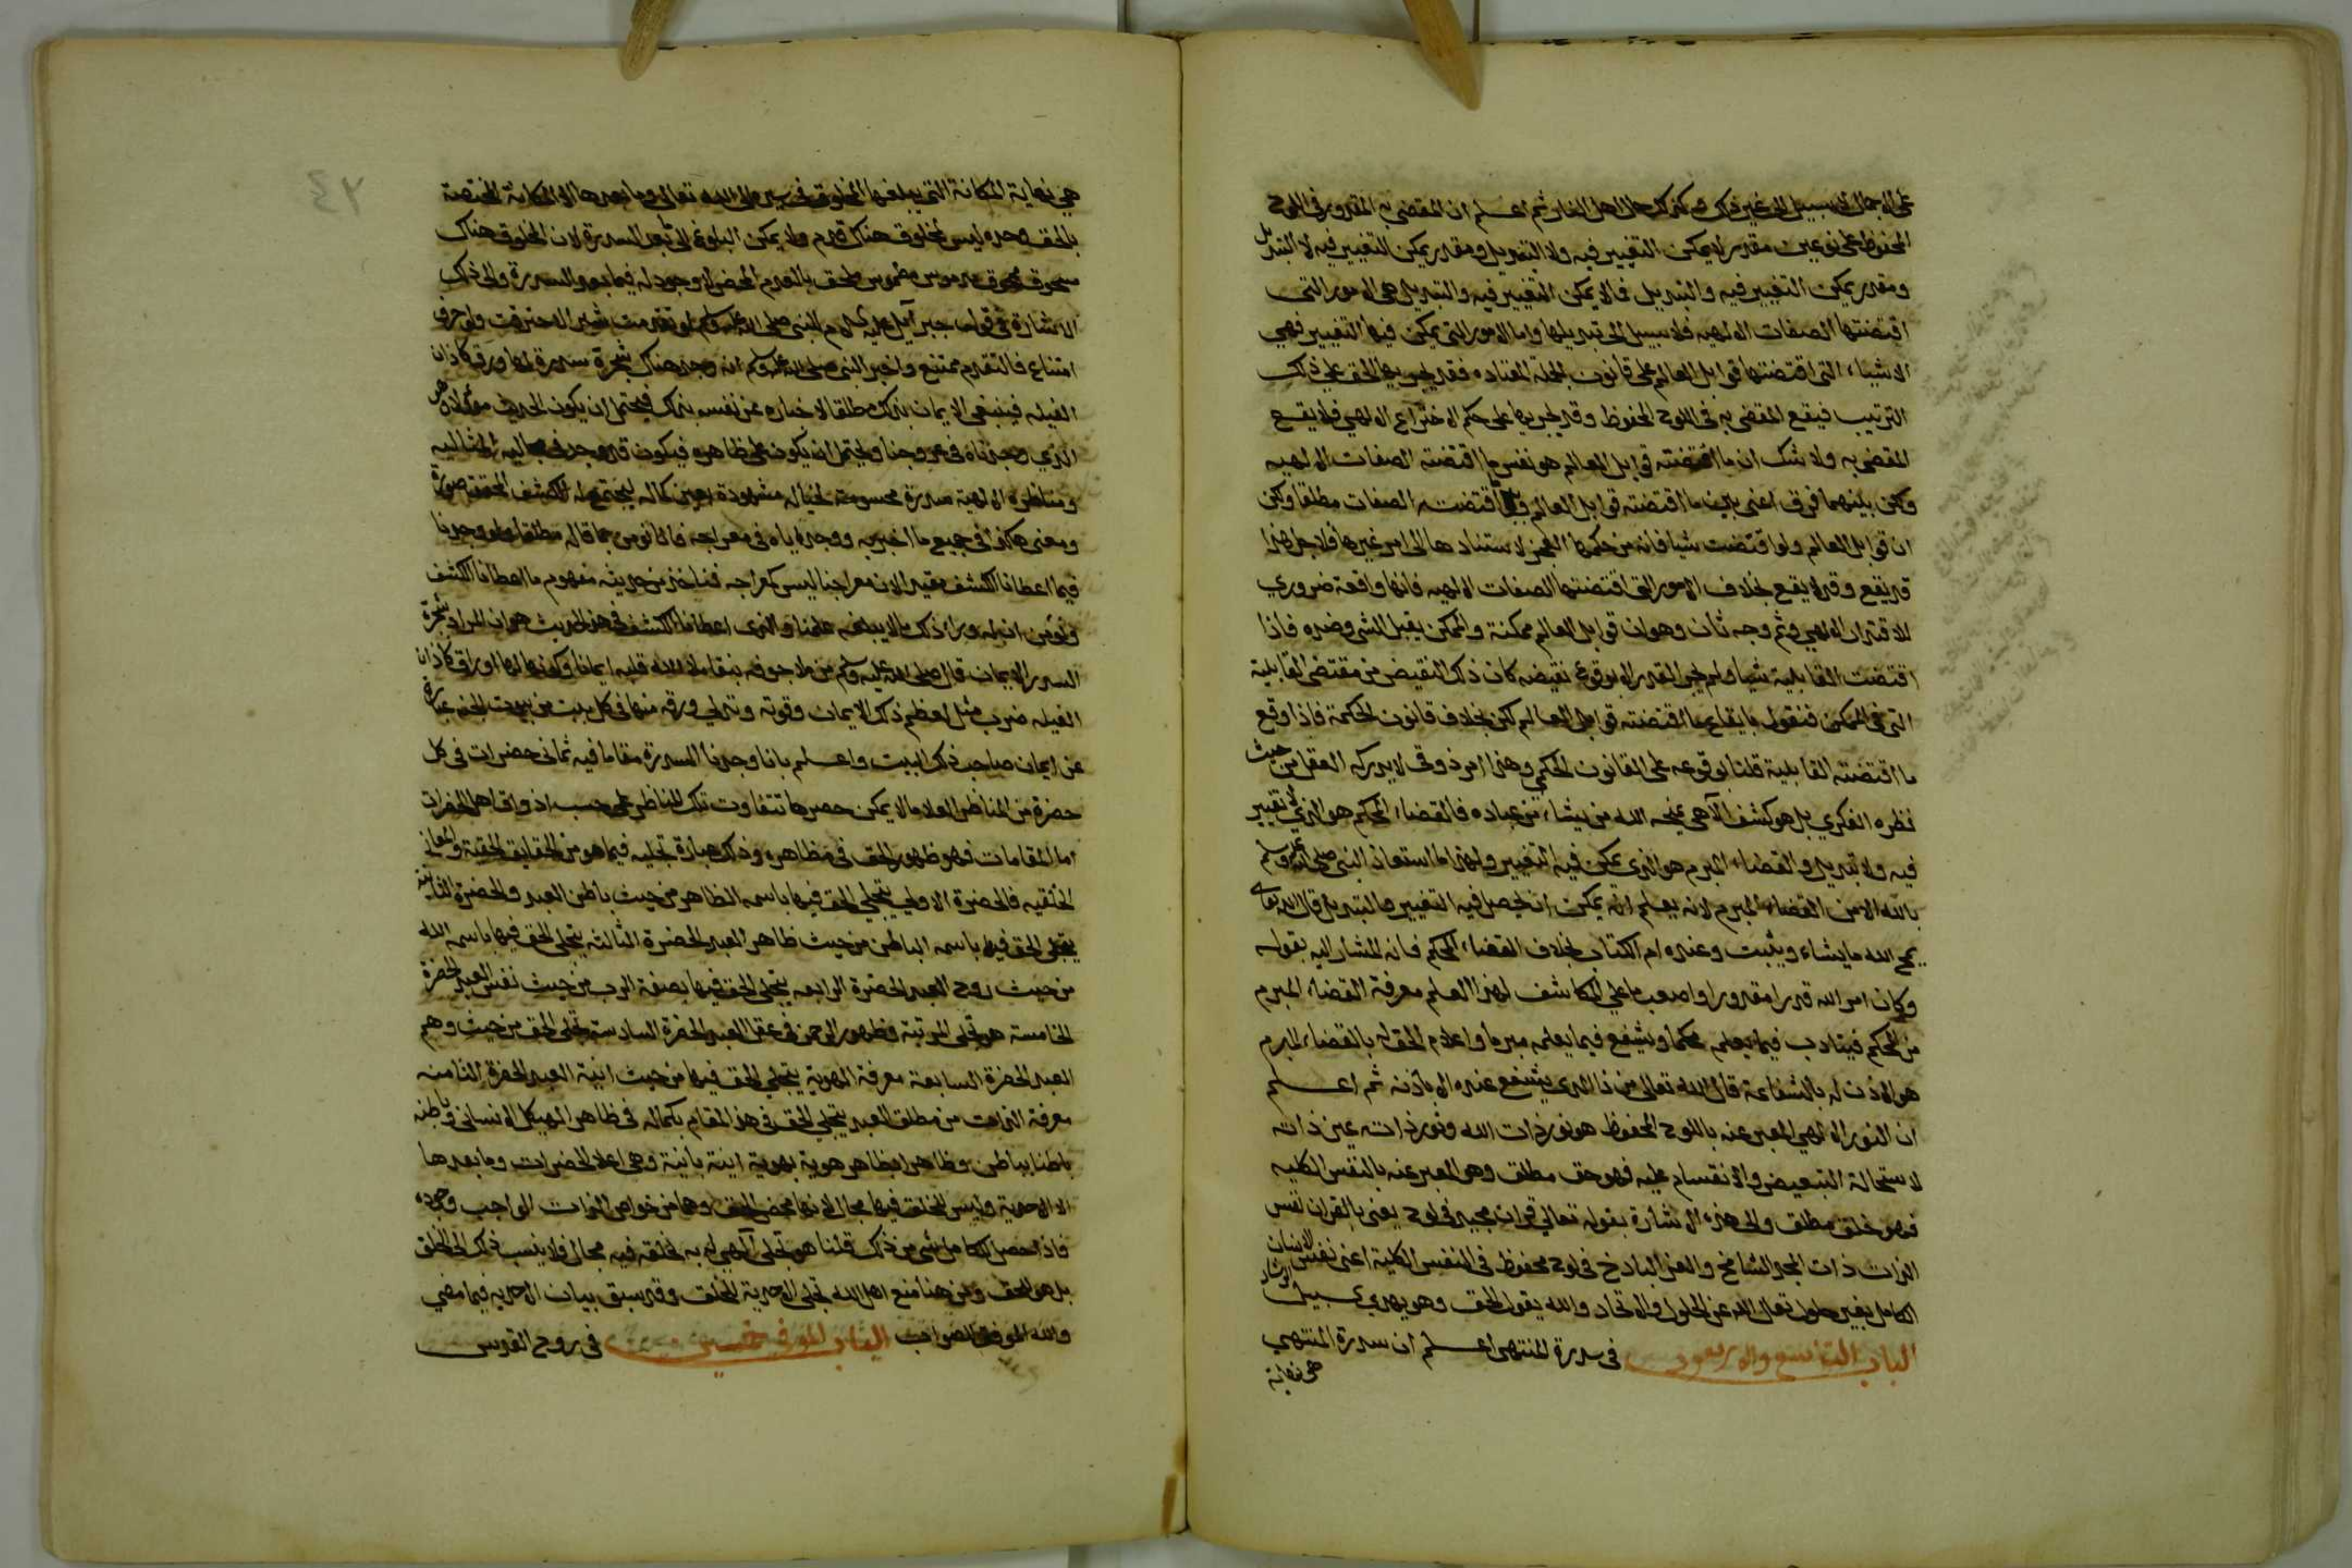 على الاجمال لا سبيل الى غير ذلك وكذلك حال اهل النار ثم اعلم ان المقضى به المقدور فى اللوح
المحفوظ على نوعين مقدر لا يمكن التغيير فيه ولا التبديل ومقدر يمكن التغيير فيه لا التبديل
ومقدر يمكن التغيير فيه والتبديل فالا يمكن التغيير فيه والتبديل هى الامور التى
اقتضتها الصفات الالهيه فلا سبيل الى تبديلها واما الامور التى يمكن فيها التغيير فهي
الاشياء التى اقتضتها قوابل العالم على قانون الحكمة المعتاده فقد يجريها الحق على ذلك
الترتيب فيقع المقضى به فى اللوح المحفوظ وقد يجريها على حكم الاختراع الالهي فلا يقع
المقضى به ولا شك ان ما اقتضته قوابل العالم هو نفس ما اقتضته الصفات الالهيه
ولكن بينهما فرق اعنى بين ما اقتضته قوابل العالم وبين ما اقتضته الصفات مطلقا ولكن
ان قوابل العالم ولو اقتضت شيا فانه من حكمها العجز لاستنادها الى امر غيرها فلاجل هذا
قد يقع وقد لا يقع بخلاف الامور التى اقتضتها الصفات الالهيه فانها واقعة ضروري
للاقتدار الالهي وثم وجه ثان وهو ان قوابل العالم ممكنة والممكن يقبل الشى وضده فاذا
اقتضت القابلية شيا ولم يجر القدر الا بوقوع نقيضه كان ذلك النقيض من مقتضى القابلية
التى فى الممكن فنقول بايقاع ما اقتضته قوابل العالم لكن بخلاف قانون الحكمة فاذا وقع
ما اقتضته القابلية قلنا بوقوعه على القانون الحكمي وهذا امر ذوقى لا يدركه العقل من حيث
نظره الفكري بل هو كشف الآهى يمنحه الله من يشاء من عباده فالقضاء المحكم هو الذي لا تغيير
فيه ولا تبديل والقضاء المبرم هو الذي يمكن فيه التغيير ولهذا ما استعاذ النبى صلى الله عليه وسلم
بالله الا من القضاء المبرم لانه يعلم انه يمكن ان يحصل فيه التغيير والتبديل قال الله تعالى
يمح الله ما يشاء ويثبت وعنده ام الكتاب بخلاف القضاء المحكم فانه المشار اليه بقوله
وكان امر الله قدرا مقدورا واصعب ما على المكاشف لهذا العلم معرفة القضاء المبرم
من المحكم فيتادب فيما يعلمه محكما ويشفع فيما يعلمه مبرما واعلام الحق له بالقضاء المبرم
هو الاذن له بالشفاعة قال الله تعالى من ذا الذى يشفع عنده الا باذنه ثم اعلم
ان النور الالهي المعبر عنه باللوح المحفوظ هو نور ذات الله ونور ذاته عين ذاته
لاستحالة التبعيض والانقسام عليه فهو حق مطلق وهو المعبر عنه بالنفس الكليه
فهو خلق مطلق والى هذه الاشارة بقوله تعالى قران مجيد فى لوح يعنى بالقران نفس
الذات ذات المجد الشامخ والعز الباذخ فى لوح محفوظ فى النفس الكلية اعنى نفس الانسان
الكامل بغير حلول تعالى الله عن الحلول والاتحاد والله يقول الحق وهو يهدي سبيل الرشاد
الباب التاسع والاربعون فى سدرة المنتهى اعلم ان سدرة المنتهى
هى نهاية
٢٤
هي نهاية المكانة التى يبلغها المخلوق فى سيره الى الله تعالى وما بعدها الا المكانة المختصة
بالحق وحده ليس لمخلوق هناك قدم ولا يمكن البلوغ الى ما بعد السدرة لان المخلوق هناك
مسحوق ممحوق مدموس مطموس ملحق بالعدم المحض لا وجود له فيما بعد السدرة والى ذلك
الاشارة فى قول جبرآئيل عليه السلام للنبى صلى الله عليه وسلم لو تقدمت شبرا لاحترقت ولو حرف
امتناع فالتقدم ممتنع واخبر النبى صلى الله عليه وسلم انه وجد هناك شجرة سدرة لها ورق كاذان
الفيله فينبغى الايمان بذلك مطلقا لاخباره عن نفسه بذلك فيحتمل ان يكون الحديث مؤولا وهو
الذي وجدناه فى عروجنا ويحتمل ان يكون على ظاهره فيكون قد وجد فى مجاليه المثاليه
ومناظره الالهية سدرة محسوسة لخياله مشهودة بعين كماله ليجتمع له الكشف المحقق صورة
ومعنى هكذا فى جميع ما اخبر به ووجده اياه فى معراجه فانا نومن بما قال مطلقا ولو وجدنا
فيما اعطانا الكشف مقيد الان معراجنا ليس كمعراجه فناخذ من حديثه مفهوم ما اعطانا الكشف
ونومن ان له وراء ذلك ما لا يبلغه علمنا والذى اعطانا الكشف فى هذا الحديث هو ان المراد بشجرة
السدر الايمان قال صلى الله عليه وسلم من ملا جوفه نبقا ملا الله قلبه ايمانا وكونها لها اوراق كاذان
الفيله ضرب مثل لعظم ذلك الايمان وقوته وتدلى ورقه منها فى كل بيت من بيوت الجنه عبارة
عن ايمان صاحب ذلك البيت واعلم بانا وجدنا السدرة مقاما فيه ثمانى حضرات فى كل
حضرة من المناظر العلا ما لا يمكن حصرها تتفاوت تلك المناظر على حسب اذواق اهل الحضرات
اما المقامات فهو ظهور الحق فى مظاهره وذلك عبارة تجليه فيما هو من الحقايق الحقية والمعانى
الخلقيه فالحضرة الاولى يتجلى الحق فيها باسمه الظاهر من حيث باطن العبد والحضرة الثانية
يتجلى الحق فيها باسمه الباطن من حيث ظاهر العبد الحضرة الثالثة يتجلى الحق فيها باسمه الله
من حيث روح العبد الحضرة الرابعه يتجلى الحق فيها بصفة الرب من حيث نفس العبد الحضرة
الخامسة هو تجلى المرتبة وظهور الرحمن فى عقل العبد الحضرة السادسة يتجلى الحق من حيث وهم
العبد الحضرة السابعة معرفة الهوية يتجلى الحق فيها من حيث انية العبد الحضرة الثامنه
معرفة الذات من مطلق العبد يتجلى الحق فى هذا المقام بكماله فى ظاهر الهيكل الانسانى وباطنه
باطنا بباطن وظاهرا بظاهر هوية بهوية انية بانية وهى اعلا الحضرات وما بعدها
الا الاحدية وليس للخلق فيها مجال لانها محض الحق وهى من خواص الذات الواجب وجوده
فاذا حصل للكامل شى من ذلك قلنا هو تجلى آلهي له به ليس لخلقه فيه مجال فلا ينسب ذلك الى الخلق
بل هو للحق ومن هنا منع اهل الله تجلى الاحدية للخلق وقد سبق بيان الاحديه فيما مضي
والله الموفق للصواب الباب الموفى خمسين فى روح القدس